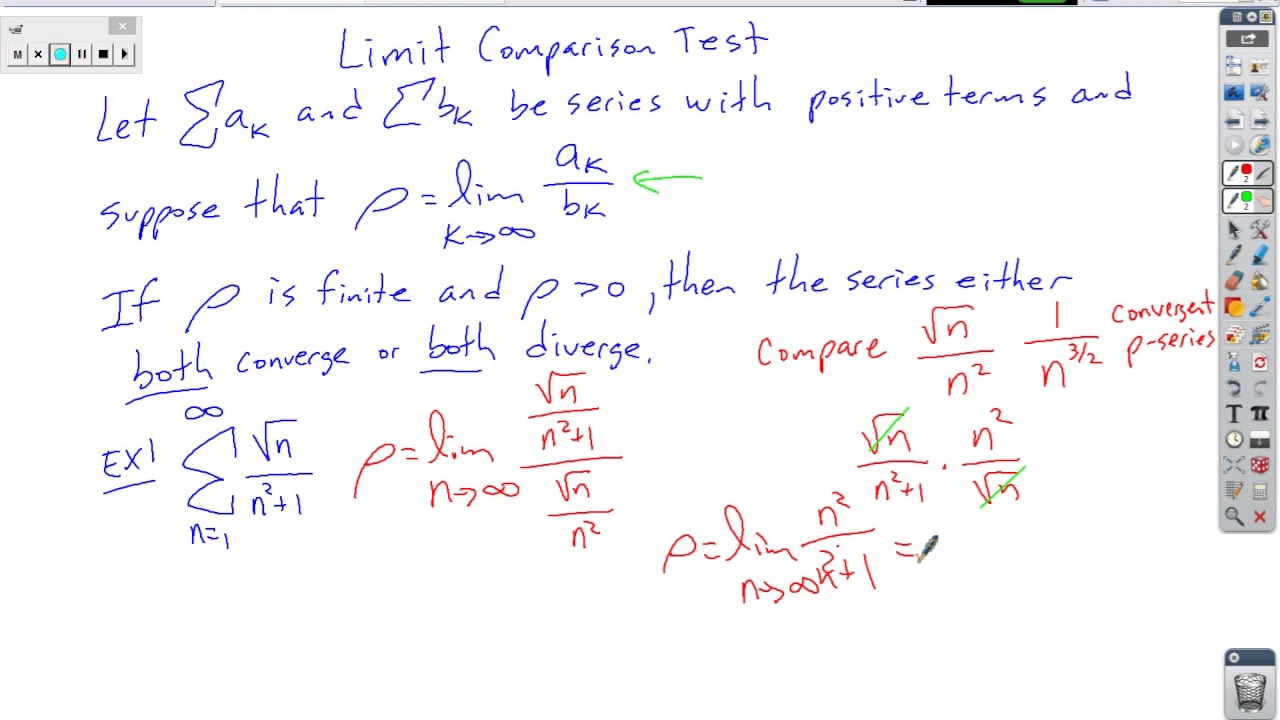 Limit Comparison Test
Let ∑aₖ and ∑bₖ be series with positive terms and
suppose that ρ = lim k→∞ aₖ/bₖ ←
If ρ is finite and ρ > 0, then the series either
both converge or both diverge.
Compare √n/n² 1/n^(3/2) convergent
p-series
EX1 ∑ n=1 ∞ √n/(n²+1) ρ = lim n→∞ (√n/(n²+1))/(√n/n²) √n/(n²+1) · n²/√n
ρ = lim n→∞ n²/(n²+1) =
M
2
2
T π